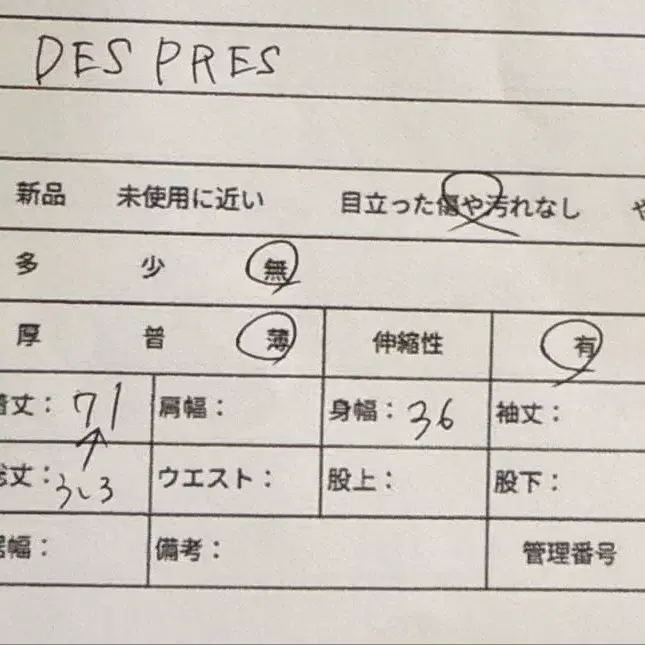 DES PRES
新品 未使用に近い 目立った傷や汚れなし や
多 少 無
厚 普 薄 伸縮性 有
着丈: 71 肩幅: 身幅: 36 袖丈:
総丈: うしろ ウエスト: 股上: 股下:
裾幅: 備考: 管理番号